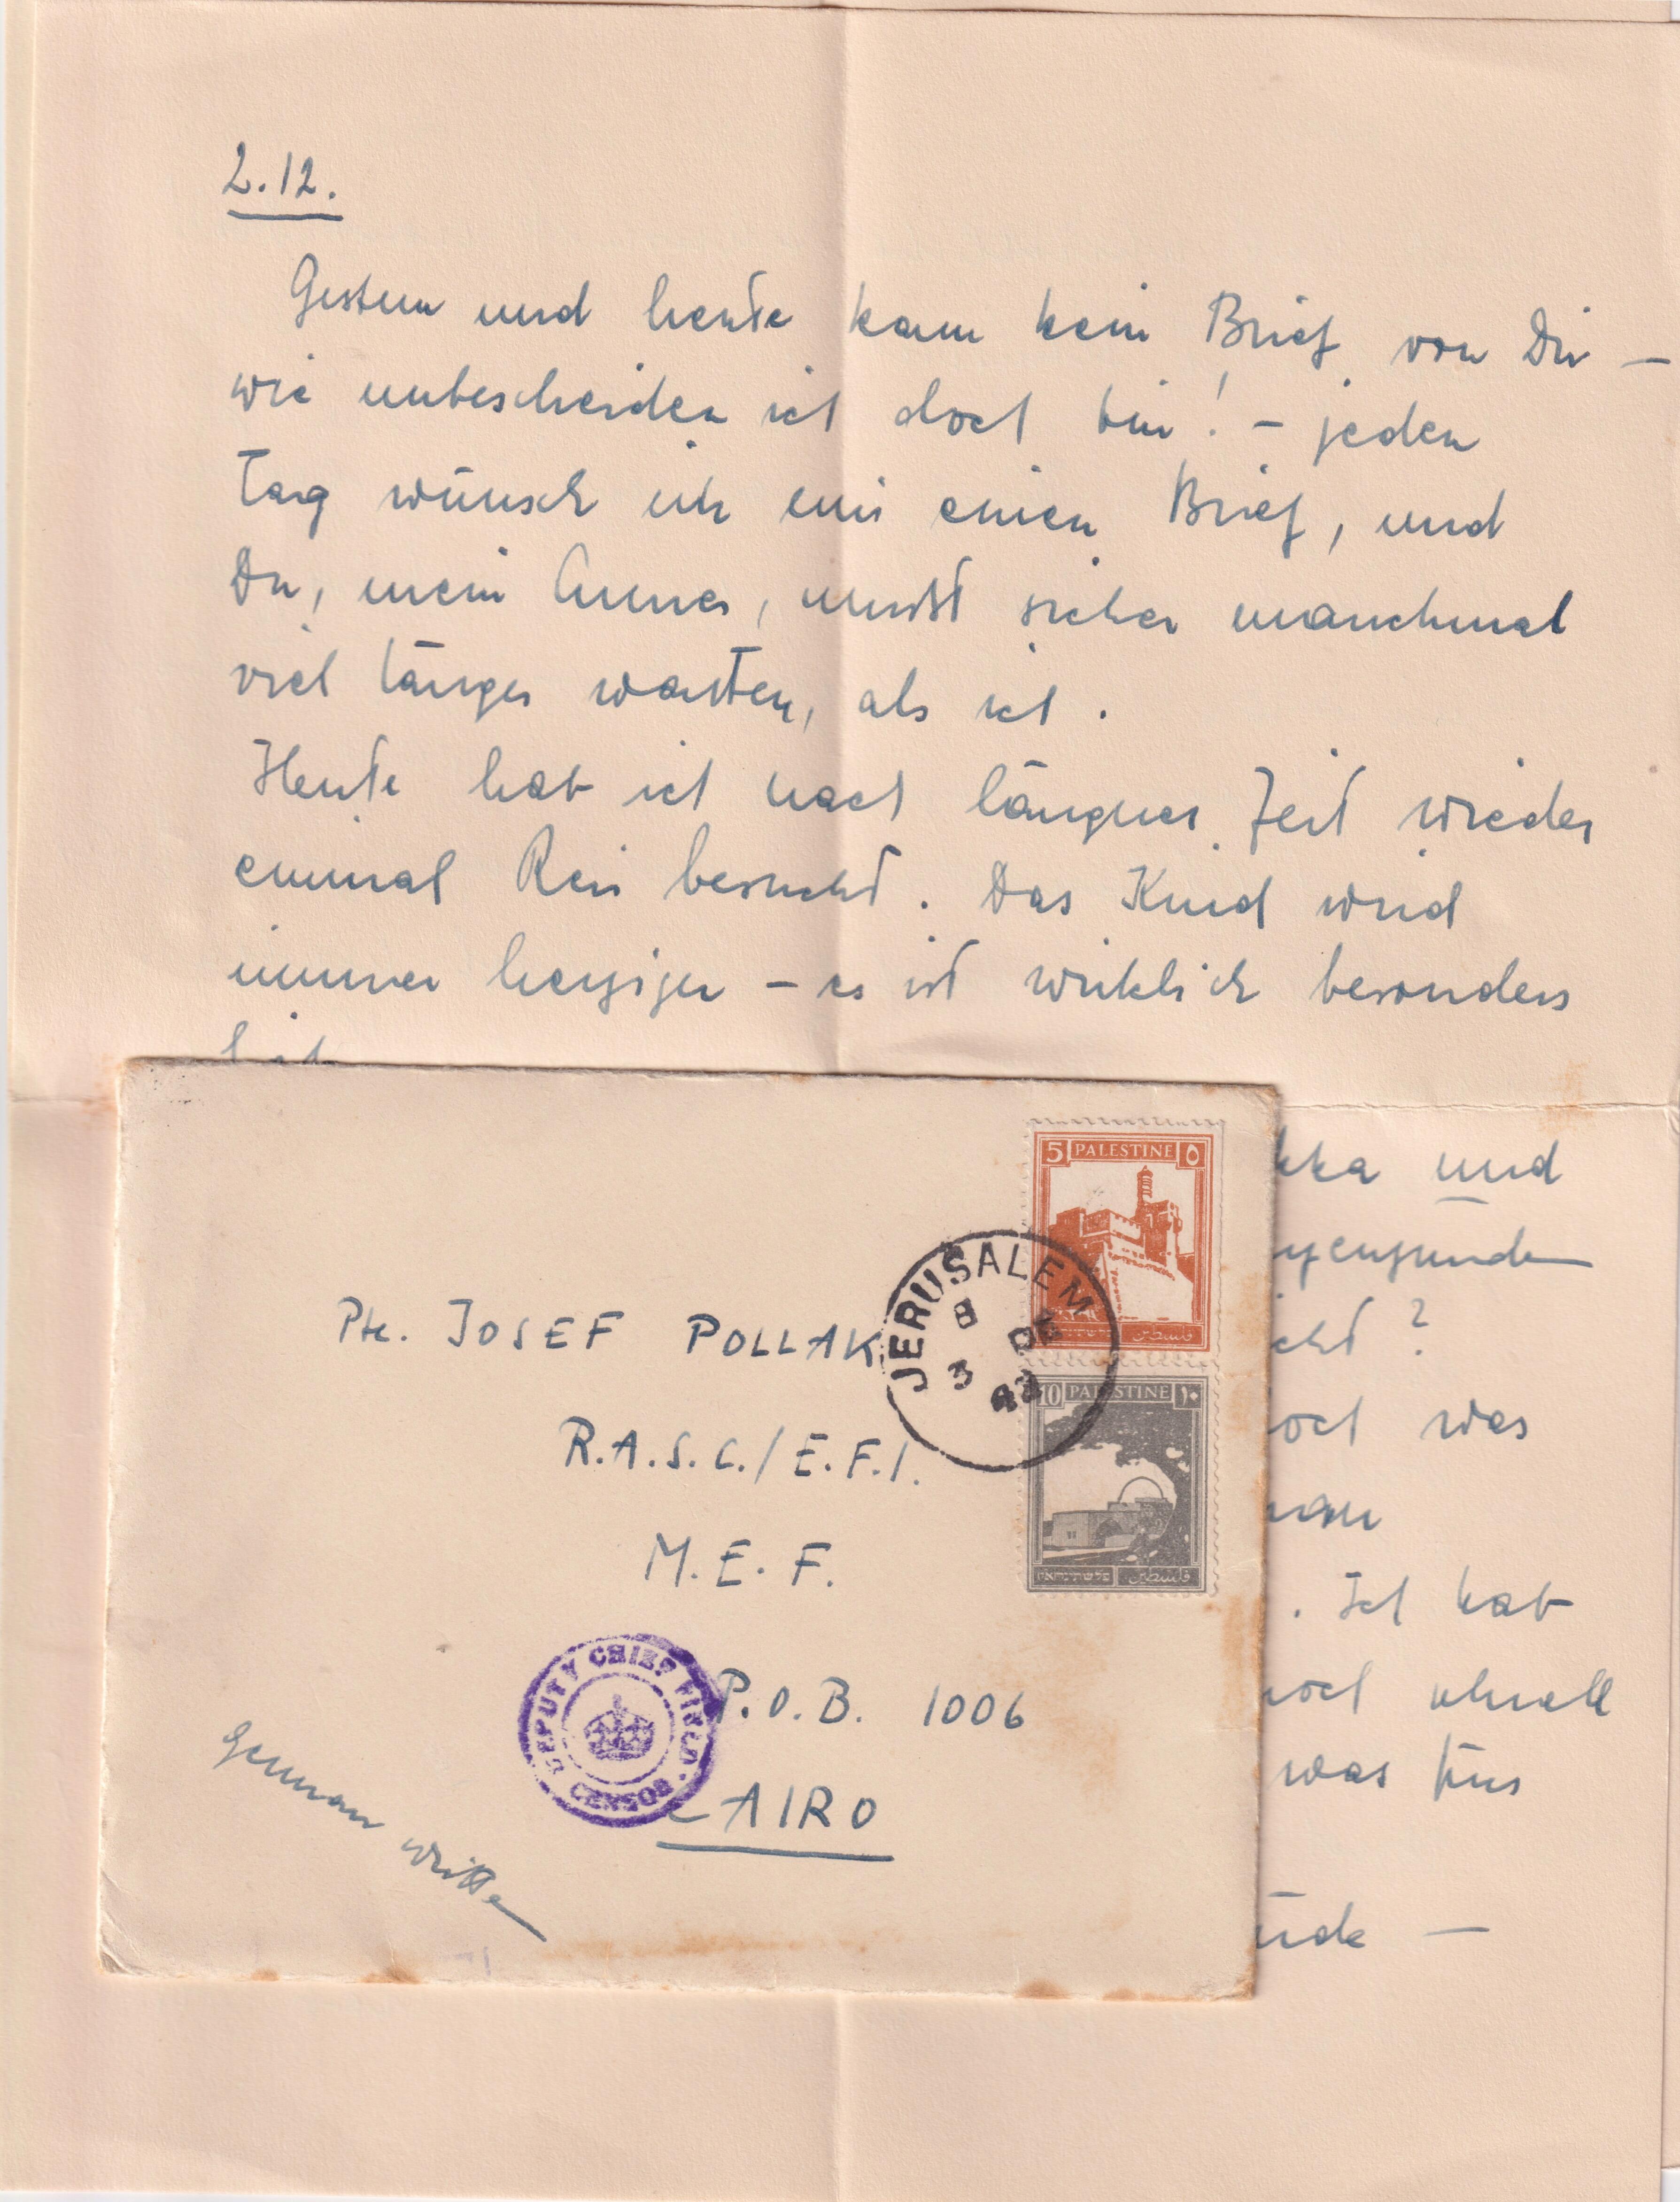 2.12.
Gestern und heute kam kein Brief von Dir –
wie unbescheiden ich doch bin! – jeden
Tag wünsch ich mir einen Brief, und
Du, mein Armer, musst sicher manchmal
viel länger warten, als ich.
Heute hab ich nach längrer Zeit wieder
einmal besucht. Das Kind wird
immer herziger – es ist wirklich besonders
und
?
was
. Ich hab
noch überall
was fürs
5 PALESTINE ٥
فلسطين
JERUSALEM
8
3 DE
43
10 PALESTINE ١٠
פלשתינה א"י فلسطين
Pte. JOSEF POLLAK
R.A.S.C./E.F.I.
M.E.F.
P.O.B. 1006
CAIRO
DEPUTY CHIEF FIELD CENSOR
German written